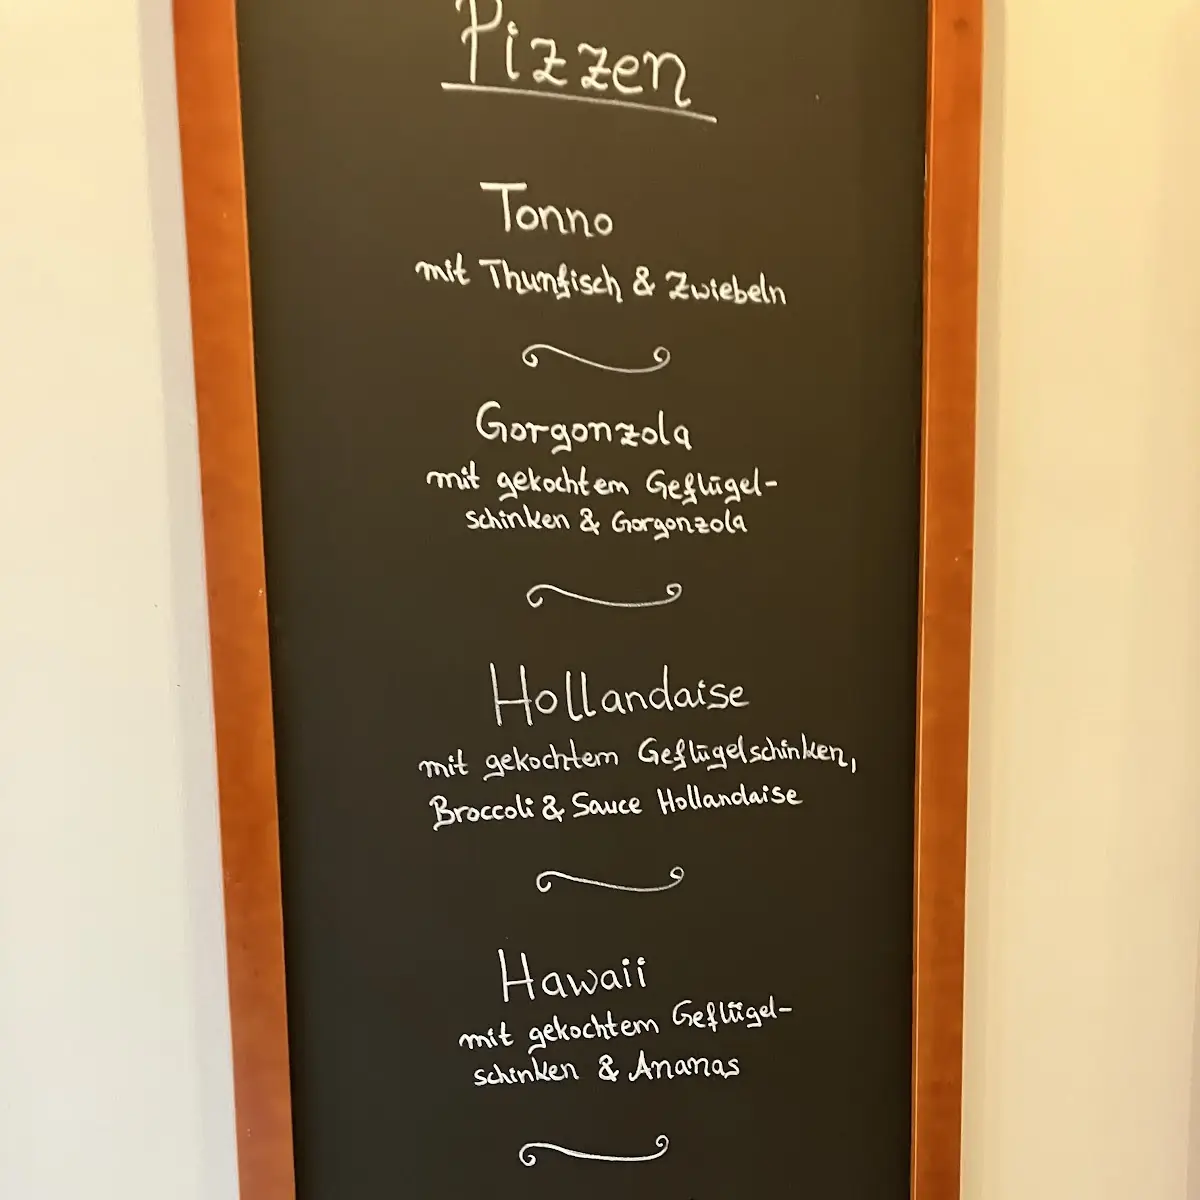 Pizzen
Tonno
mit Thunfisch & Zwiebeln
Gorgonzola
mit gekochtem Geflügel-
schinken & Gorgonzola
Hollandaise
mit gekochtem Geflügelschinken,
Broccoli & Sauce Hollandaise
Hawaii
mit gekochtem Geflügel-
schinken & Ananas